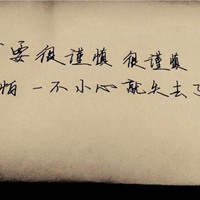 要很謹慎 很謹慎
怕 一不小心就失去了